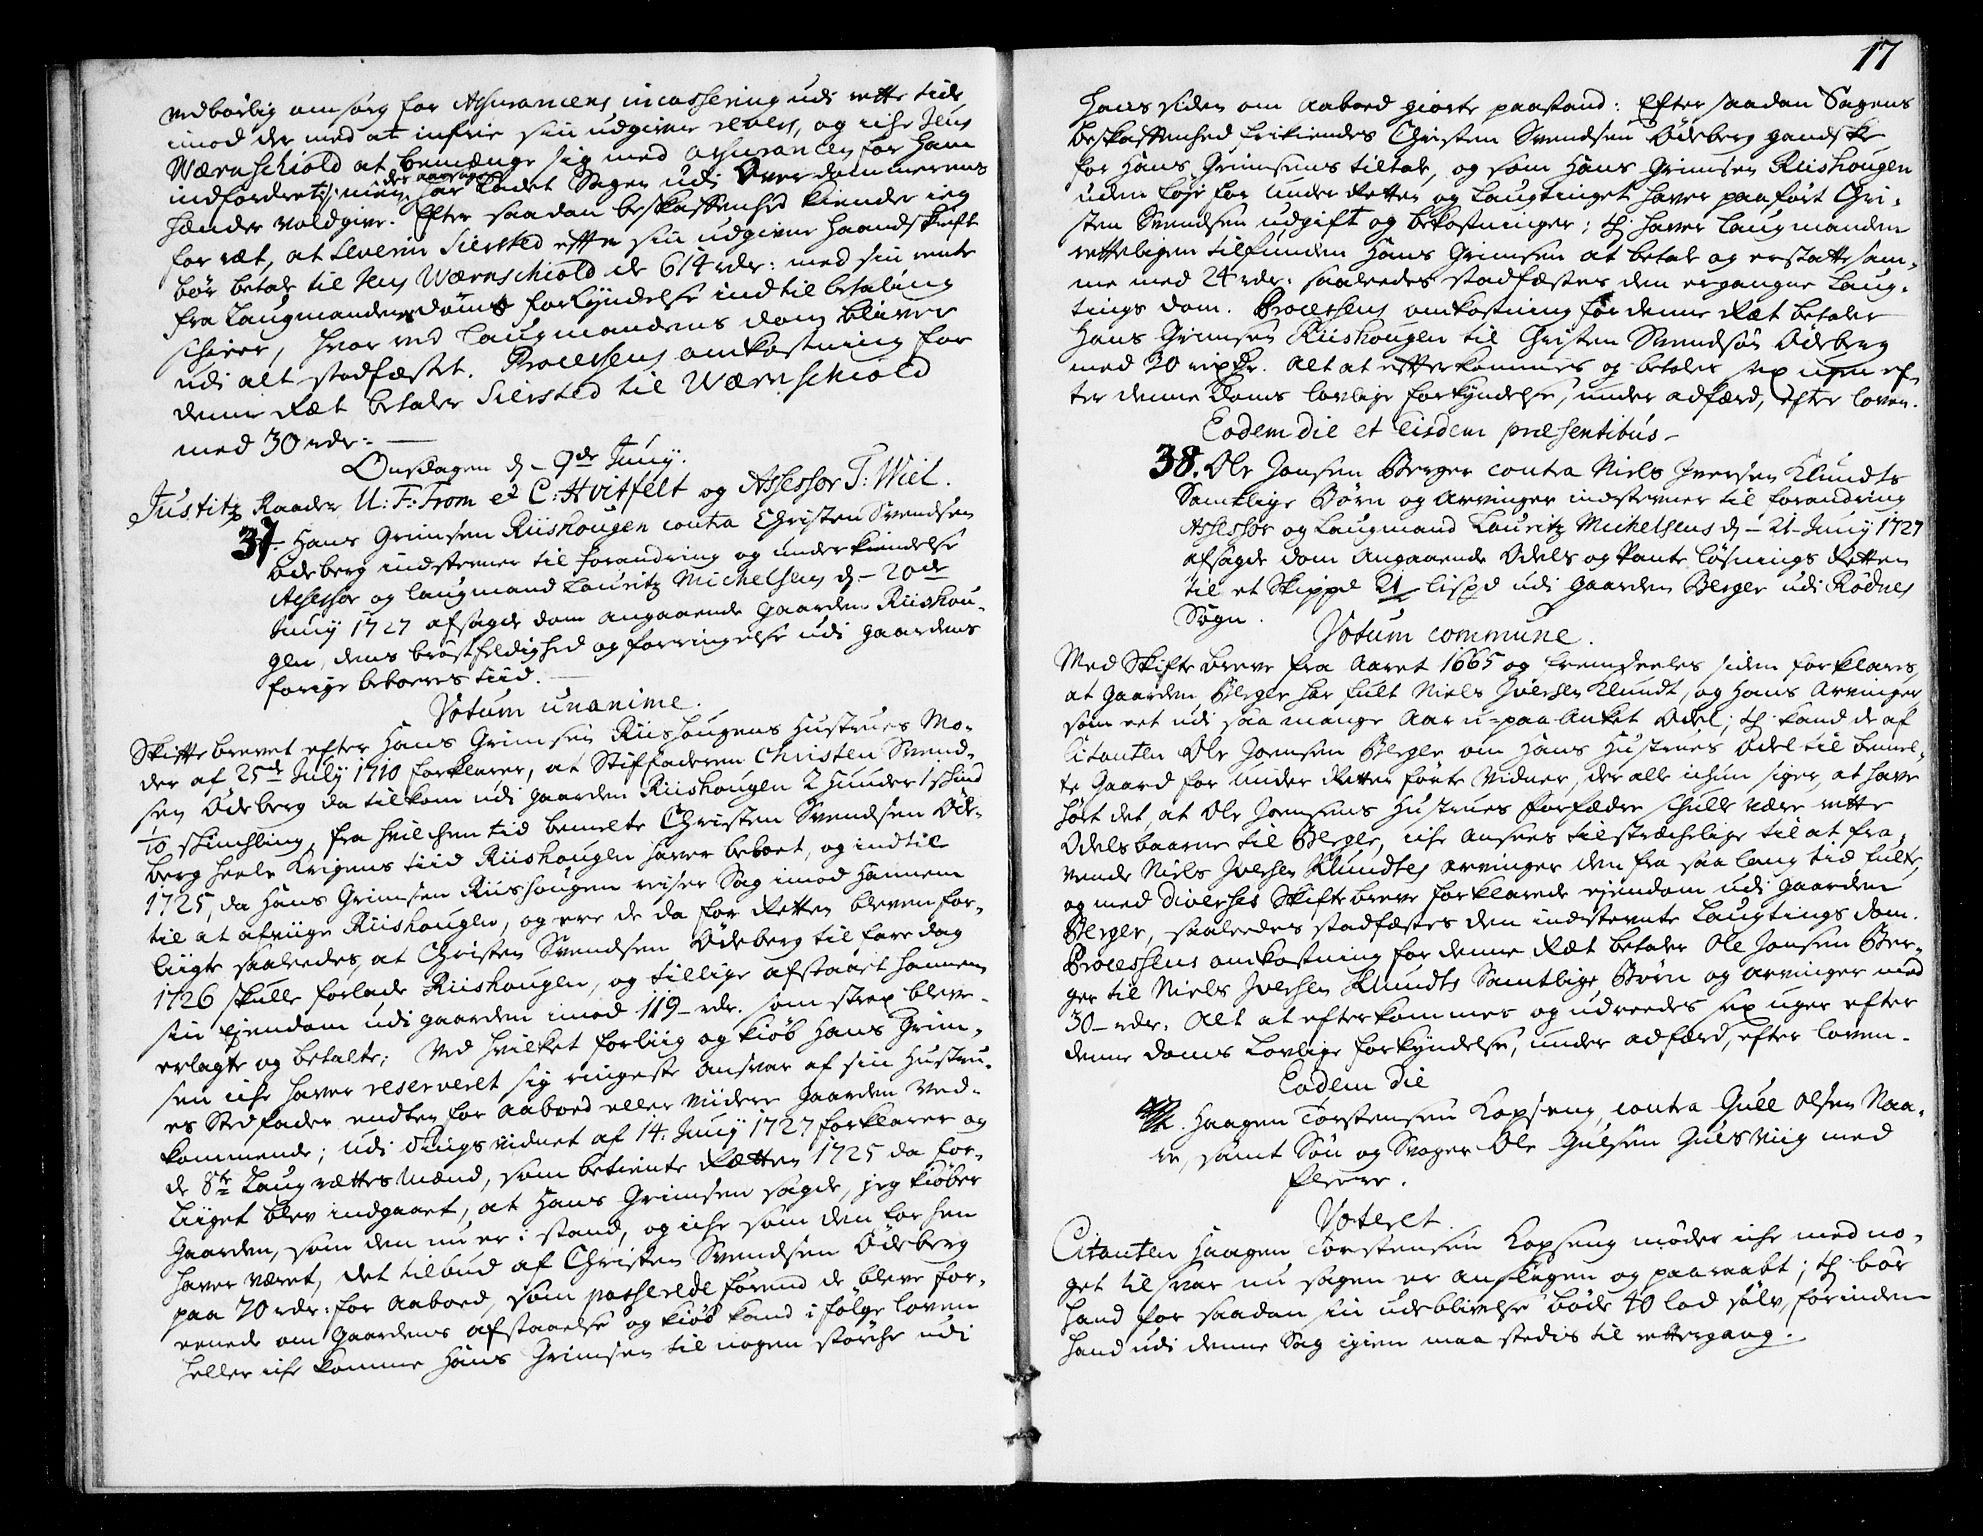 vedbørlig omsorg for Assurancens incassering udi rette tide
imod der med at infrie sin udgivne revers, og iche Jens
Wærnschiold at bemænge sig med assurancen for ham
indfordret; men der aarsages har ladet Sagen udi Overdommerens
hænder voldgive. Efter saadan beskaffenhed kiender ieg
for ræt, at Severin Siersted efter sin udgivne haandskrift
bør betale til Jens Wærnschiold de 614 rdr: med sin rente
fra Laugmandens doms forkyndelse indtil betaling
scheer, hvor ved Laugmandens dom bliver
udi alt stadfæstet. Processens omkostning for
denne Ræt betaler Siersted til Wærnschiold
med 30 rdr:
Onsdagen d – 9de Juny.
Justitz Raader U: F: From et C: Hvitfelt og Assessor T: Wiel.
37. Hans Grimsen Riishougen contra Christen Svendsen
Ødeberg indstevner til forandring og underkiendelse
Assessor og laugmand Lauritz Michelsens d – 20de
Juny 1727 afsagde dom angaaende gaarden Riishou-
gen, dens brøstfeldighed og forringelse udi gaardens
forige beboeres tiid.
Votum unanime.
Skiftebrevet efter Hans Grimsen Riishougens Hustrues Mo-
der af 25de July 1710 forklarer, at Stiffaderen Christen Svend-
sen Ødeberg da tilkom udi gaarden Riishougen 2 Huuder 1 skind
10 skindling, fra hvilchen tid bemelte Christen Svendsen Øde-
berg heele krigens tiid Riishougen haver beboet, og indtil
1725, da Hans Grimsen Riishougen reiser Sag imod hannem
til at afviige Riishougen, og ere de da for Retten bleven for-
liigte saaledes, at Christen Svendsen Ødeberg til faredag
1726 skulle forlade Riishougen, og tillige afstaaet hannem
sin Ejendom udi gaarden imod 119 – rdr. som strax bleve
erlagte og betalte; Ved hvilket forliig og kiøb Hans Grim-
sen iche haver reserveret sig ringeste ansvar af sin Hustru-
es Stedfader endten for aaboed eller viidere gaarden ved-
kommende; udi tingsvidnet af 14: Juny 1727 forklarer og
de 8te Laugrættes Mænd, som betiente Rætten 1725 da for-
liiget blev indgaaet, at Hans Grimsen sagde, jeg kiøber
gaarden, som den nu er i stand, og iche som den for hen
haver været, det tilbud af Christen Svendsen Ødeberg
paa 20 rdr: for aaboed, som passerede forend de bleve for-
eenede om gaardens afstaaelse og kiøb kand i følge loven
heller iche komme Hans Grimsen til nogen störche udi
17
hans siden om aaboed giorte paastand: Efter saadan Sagens
beskaffenhed frikiendes Christen Svendsen Ødeberg gandske
for Hans Grimsens tiltale, og som Hans Grimsen Riishougen
uden føje for Under Retten og Laugtinget haver paaført Chri-
sten Svendsen udgift og bekostninger; th: haver Laugmanden
retteligen tilfunden Hans Grimsen at betale og erstatte sam-
me med 24 rdr: saaledes stadfæstes den ergangne Laug-
tings dom. Processens omkostning for denne Ræt betaler
Hans Grimsen Riishougen til Christen Svendsøn Ødeberg
med 30 rixdr. Alt at efterkommes og betales sex uger ef-
ter denne Doms lovlige forkyndelse, under adfærd, efter loven.
Eodem die et eisdem præsentibus –
38. Ole Jonsen Berger contra Niels Iversen Klundts
Samtlige Børn og arvinger indstevner til forandring
Assessor og Laugmand Lauritz Michelsens d – 21 Juny 1727
afsagde dom angaaende Odels og Pante løsnings Retten
til et Skippd 21 lispd udi gaarden Berger udi Rødnes
Sogn.
Votum commune.
Med Skiftebreve fra Aaret 1665 og fremdeeles siden forklares,
at gaarden Berger har fult Niels Iversen Klundt, og Hans arvinger
som ret udi saa mange Aar u-paa anket Odel; th: kand de af
Citanten Ole Jonsen Berger om Hans Hustrues Odel til bemel-
te gaard for under Retten førte Vidner, der alle ichun siger, at have
hørt det, at Ole Jonsens Hustrues forfædre schulle være rette
Odelsbaarne til Berger, iche ansees tilstræchelige til at fra-
vende Niels Iversen Klundtes arvinger den fra saa lang tid fulte
og med diverses Skiftebreve forklarede ejendom udi gaarden
Berger, saaledes stadfæstes den indstevnte Laugtings dom.
Processens omkostning for denne Ræt betaler Ole Jonsen Ber-
ger til Niels Iversen Klundts Samtlige Børn og arvinger med
30 – rdr: Alt at efterkommes og udreedes sex uger efter
denne doms lovlige forkyndelse, under adfærd, efter loven.
Eodem die
Haagen Torstensen Kopseng, contra Gull Olsen Naa-
re, samt Søn og Svoger Ole Gulsen Gulsviig med
fleere.
Voteret.
Citanten Haagen Torstensen Kopseng møder iche med no-
get tilsvar nu sagen er anslagen og paaraabt; th: bør
hand for saadan sin udeblivelse bøde 40 lod sølv, forinden
hand udi denne Sag igien maa stedis til rettergang.